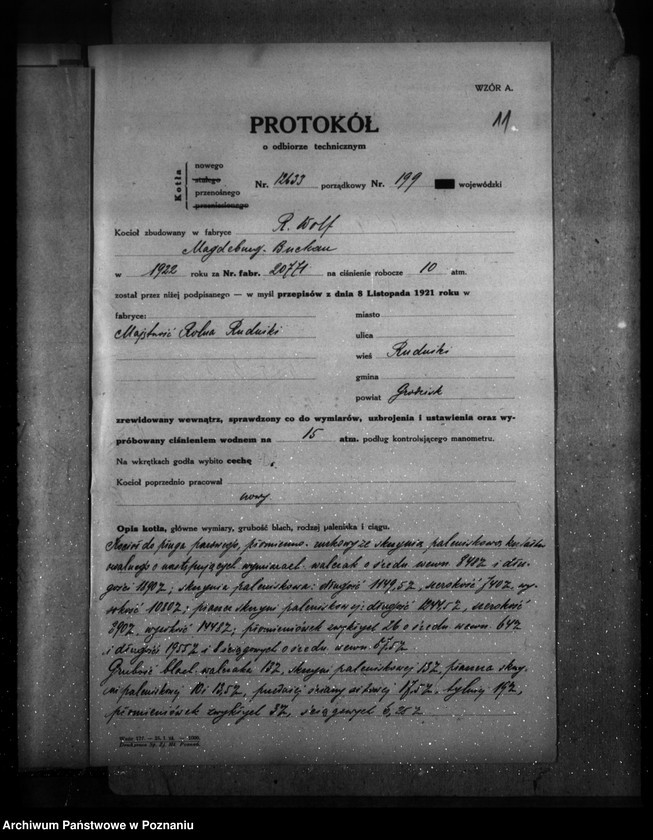 WZÓR A.
11
PROTOKÓŁ
o odbiorze technicznym
Kotła
nowego
stałego
przenośnego
przeniesionego
Nr. 12633 porządkowy Nr. 199 wojewódzki
Kocioł zbudowany w fabryce R. Wolf
Magdeburg-Buckau
w 1922 roku za Nr. fabr. 20771 na ciśnienie robocze 10 atm.
został przez niżej podpisanego — w myśl przepisów z dnia 8 Listopada 1921 roku w
fabryce:
Majętność Rolna Rudniki
miasto
ulica
wieś Rudniki
gmina
powiat Grodzisk
zrewidowany wewnątrz, sprawdzony co do wymiarów, uzbrojenia i ustawienia oraz wy-
próbowany ciśnieniem wodnem na 15 atm. podług kontrolującego manometru.
Na wkrętkach godła wybito cechę
Kocioł poprzednio pracował
nowy
Opis kotła, główne wymiary, grubość blach, rodzaj paleniska i ciągu.
Kocioł do pługa parowego, płomienno-rurkowy ze skrzynią paleniskową kształtu
owalnego o następujących wymiarach: walczak o średn. wewn. i dłu-
gości; skrzynia paleniskowa: długość, szerokość, wy-
sokość; płaszcz skrzyni paleniskowej: długość, szerokość
wysokość; płomieniówek zwykłych 26 o średn. wewn. 64
i długości 1955 i 8 ściągowych o średn. wewn.
Grubość blach walczaka 13, skrzyni paleniskowej 13, płaszcza skrzy-
ni paleniskowej, przedniej ściany sitowej, tylnej 19,
płomieniówek zwykłych 3, ściągowych 6,25
Wzór 127. — 25. I. 24. — 1000.
Drukarnia Sp. Zj. Mł. Poznań.
Archiwum Państwowe w Poznaniu